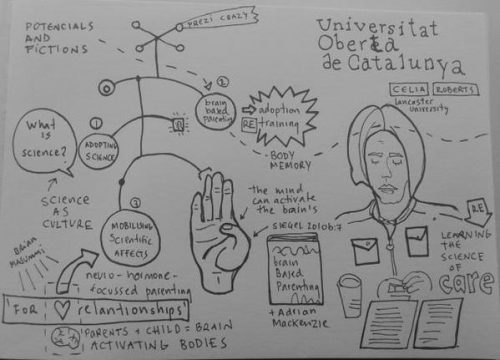 POTENCIALS
AND
FICTIONS
PREZI CRAZY
Universitat
Oberta
de Catalunya
CELIA ROBERTS
lancaster
university
What
is
science?
1
ADOPTING
SCIENCE
2
brain
based
parenting
adoption
RE training
BODY
MEMORY
SCIENCE
AS
CULTURE
3
MOBILISING
Scientific
AFFECTS
the mind
can activate
the brain's
SIEGEL 2010b:7
brain
Based
Parenting
+ Adrian
MacKenzie
RE
LEARNING
THE
SCIENCE
OF
care
BRIAN
MASSUMI
neuro-hormone-
focussed parenting
FOR relantionships!
PARENTS + CHILD = BRAIN
ACTIVATING BODIES